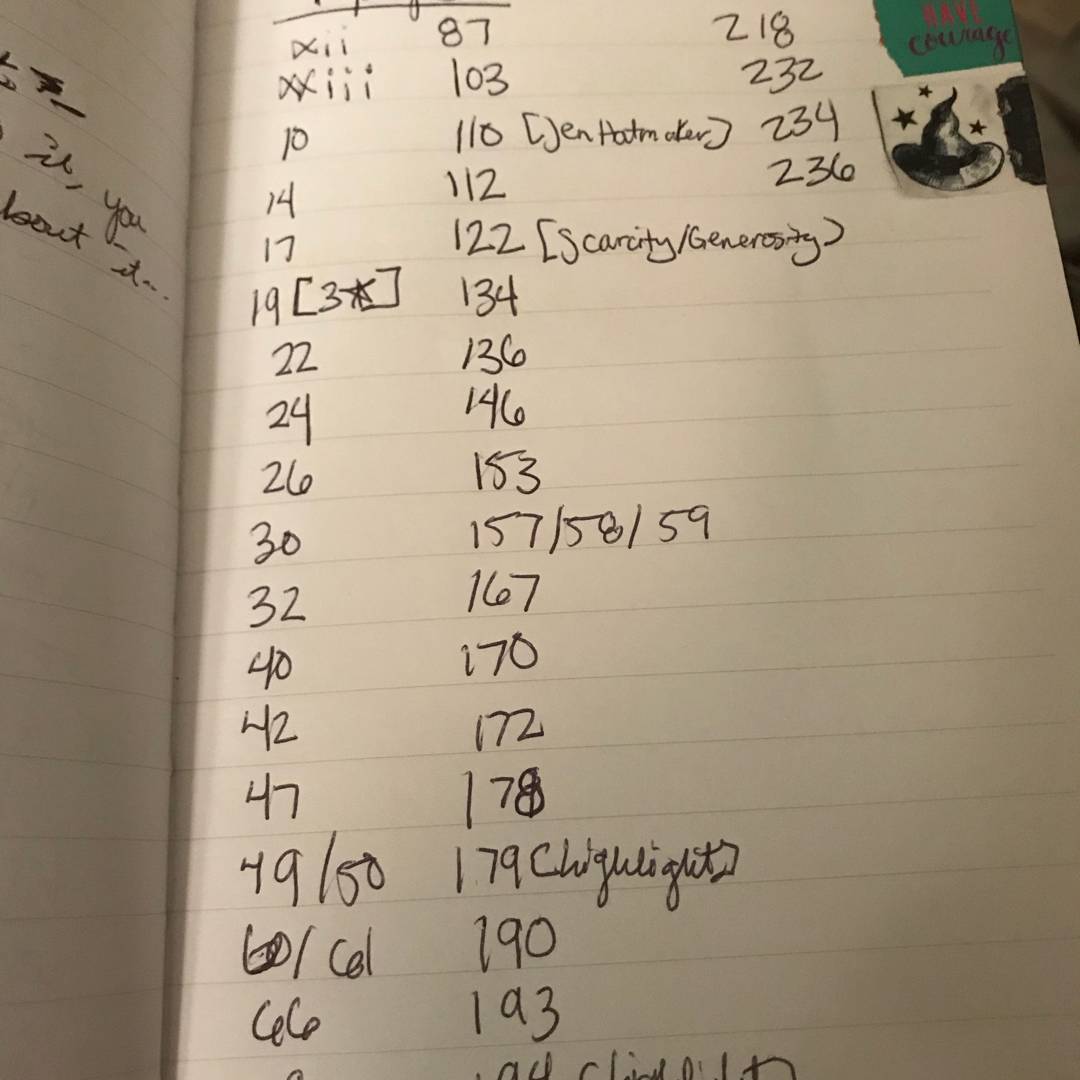 HAVE
courage
it, you
about it...
xii 87 218
xxiii 103 232
10 110 [Jen Hatmaker] 234
14 112 236
17 122 [Scarcity/Generosity]
19 [3★] 134
22 136
24 146
26 153
30 157/58/59
32 167
40 170
42 172
47 178
49/50 179 [highlight]
60/61 190
66 193
194 [highlight]